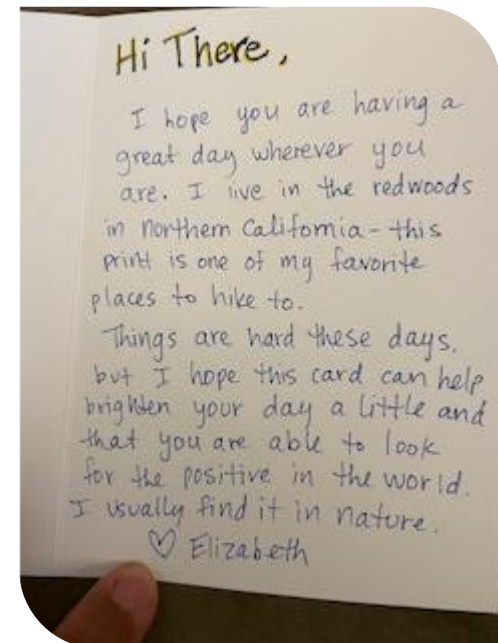 Hi There,
I hope you are having a
great day wherever you
are. I live in the redwoods
in northern California - this
print is one of my favorite
places to hike to.
Things are hard these days,
but I hope this card can help
brighten your day a little and
that you are able to look
for the positive in the world.
I usually find it in nature.
♡ Elizabeth